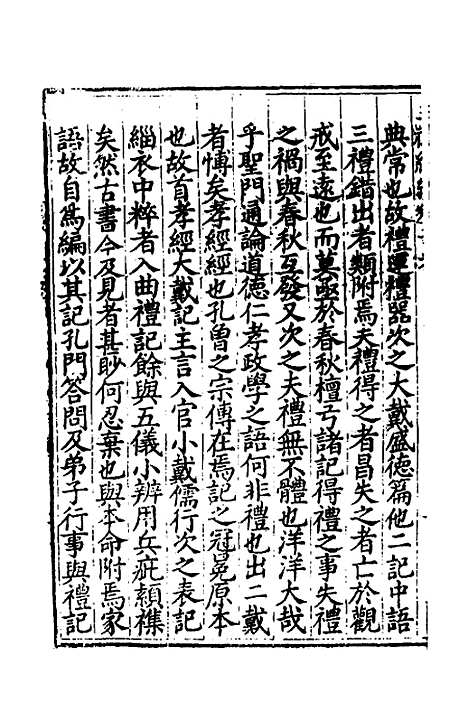 典常也故禮運禮器次之大戴盛德篇他二記中語
三禮錯出者類附焉夫禮得之者昌失之者亡於觀
戒至遠也而莫亟於春秋檀弓諸記得禮之事失禮
之禍與春秋互發又次之夫禮無不體也洋洋大哉
乎聖門通論道德仁孝政學之語何非禮也出二戴
者愽矣孝經經也孔曾之宗傳在焉記之冠冕原本
也故首孝經大戴記主言入官小戴儒行次之表記
緇衣中粹者入曲禮記餘與五儀小辨用兵疵纇襍
矣然古書今及見者甚眇何忍棄也與本命附焉家
語故自爲編以其記孔門答問及弟子行事與禮記